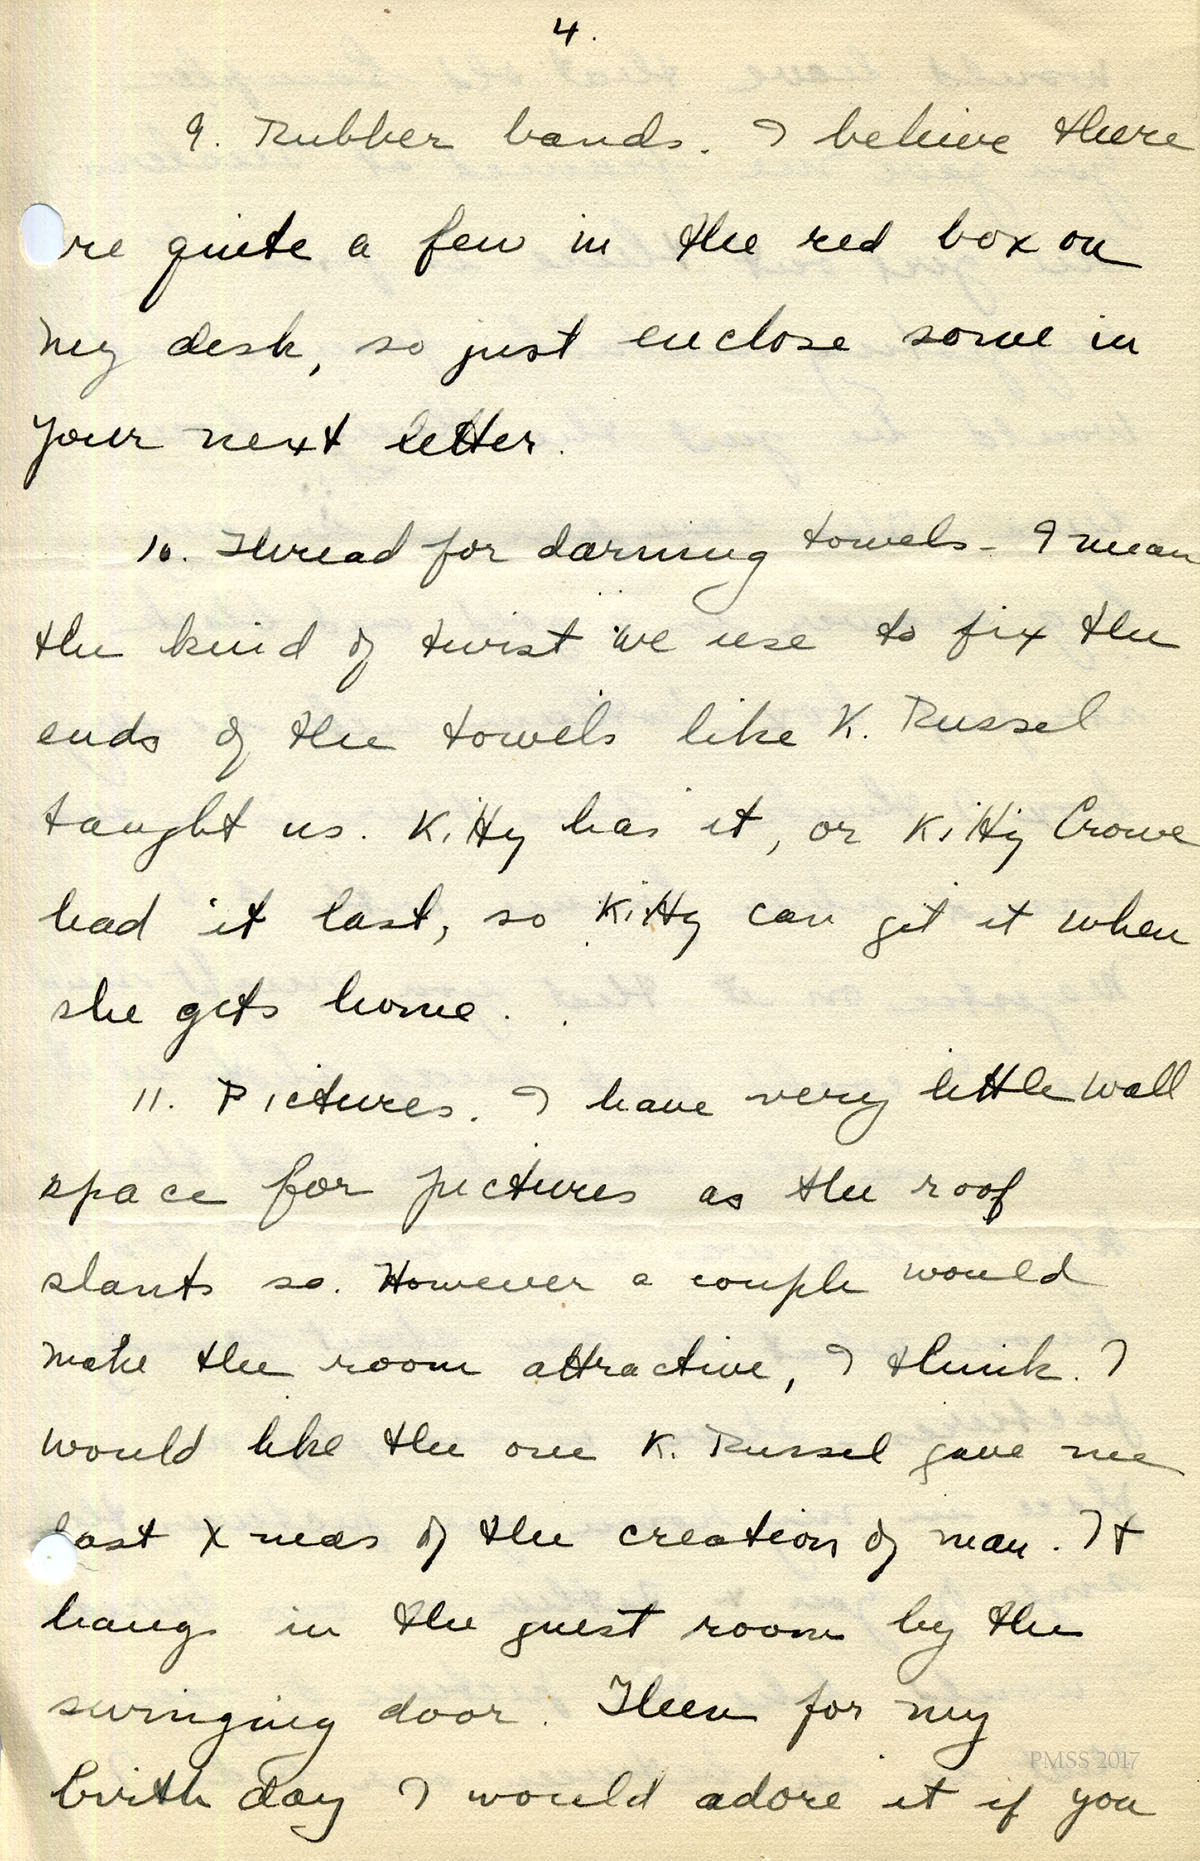 4.
9. Rubber bands. I believe there
re quite a few in the red box on
my desk, so just enclose some in
your next letter.
10. Thread for darning towels - I mean
the kind of twist we use to fix the
ends of the towels like K. Russel
taught us. Kitty has it, or Kitty Crowe
had it last, so Kitty can get it when
she gets home.
11. Pictures. I have very little wall
space for pictures as the roof
slants so. However a couple would
make the room attractive, I think. I
would like the one K. Russel gave me
last Xmas of the creation of man. It
hangs in the guest room by the
swinging door. Then for my
birthday I would adore it if you
PMSS 2017